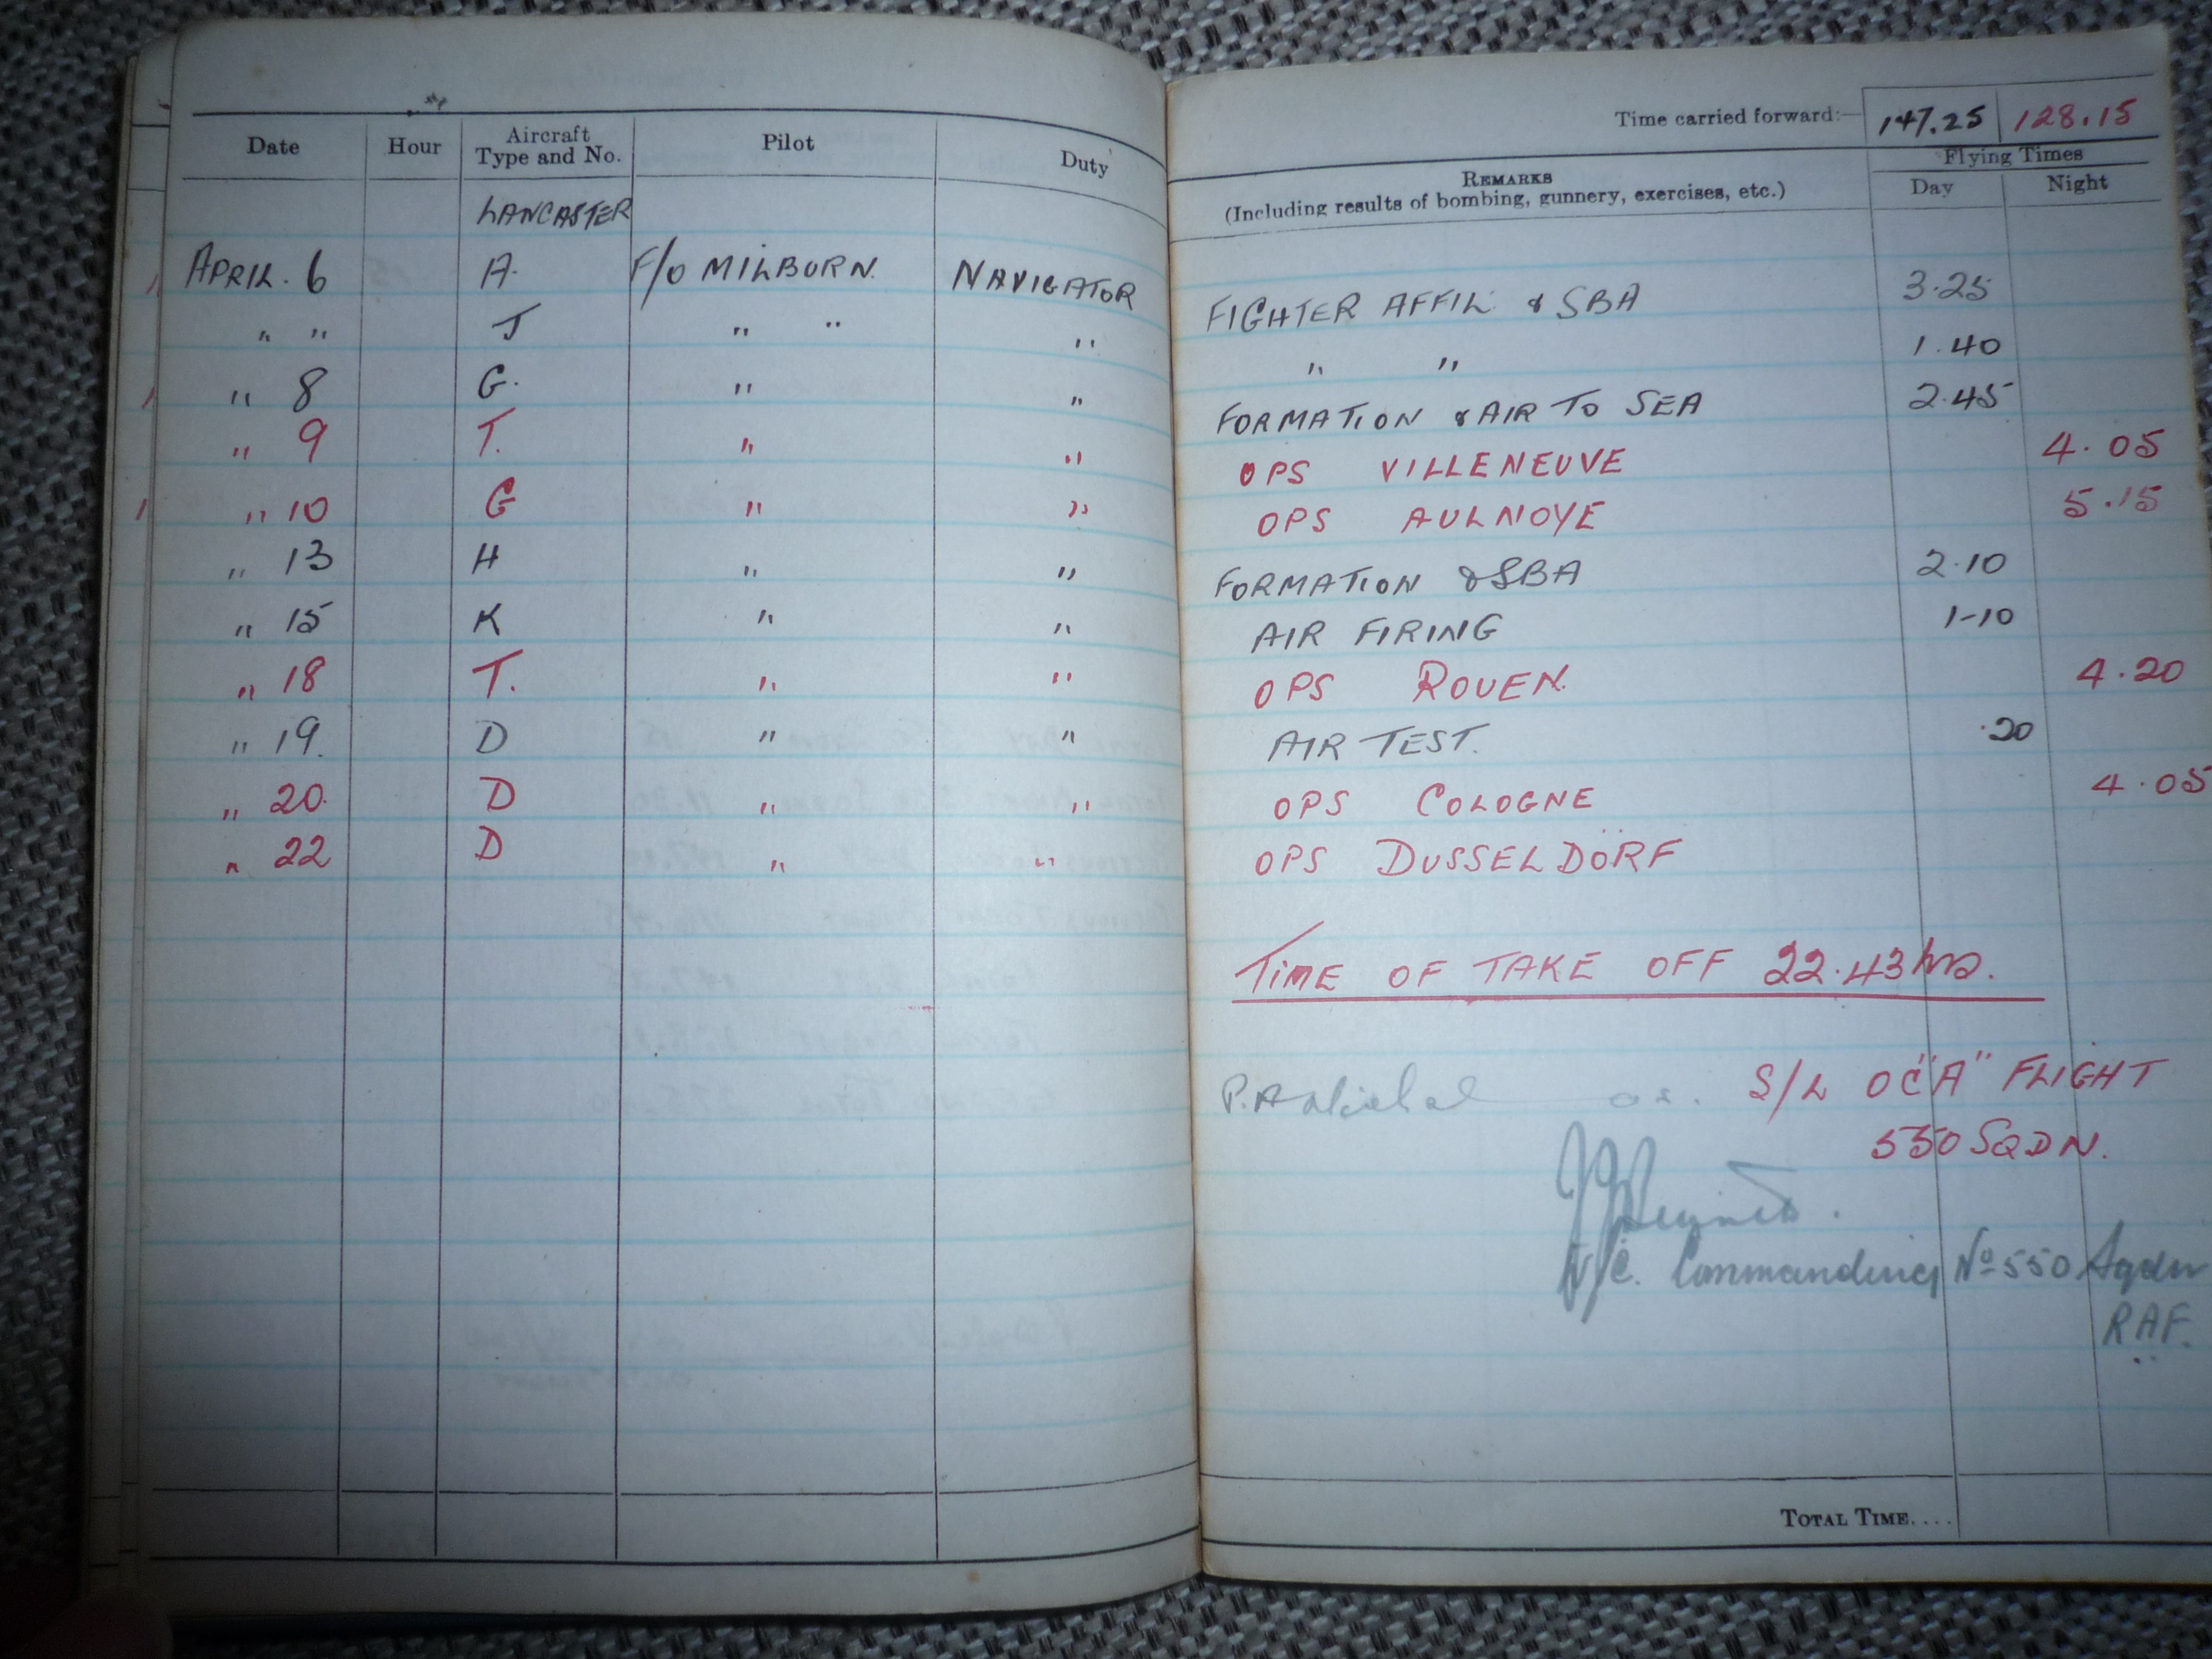 Time carried forward:— 147.25 128.15
Date Hour Aircraft Type and No. Pilot Duty REMARKS (Including results of bombing, gunnery, exercises, etc.) Flying Times Day Night
LANCASTER
APRIL. 6 A. F/O MILBURN. NAVIGATOR FIGHTER AFFIL. & SBA 3.25
" " J " " " " " 1.40
" 8 G. " " FORMATION & AIR TO SEA 2.45
" 9 T. " " OPS VILLENEUVE 4.05
" 10 G " " OPS AULNOYE 5.15
" 13 H " " FORMATION & SBA 2.10
" 15 K " " AIR FIRING 1-10
" 18 T. " " OPS ROUEN. 4.20
" 19. D " " AIR TEST. .20
" 20. D " " OPS COLOGNE 4.05
" 22 D " " OPS DUSSELDÖRF
TIME OF TAKE OFF 22.43 hrs.
P.A. S/L OC "A" FLIGHT
550 SQDN.
W/C. Commanding No 550 Sqdn
RAF.
TOTAL TIME....